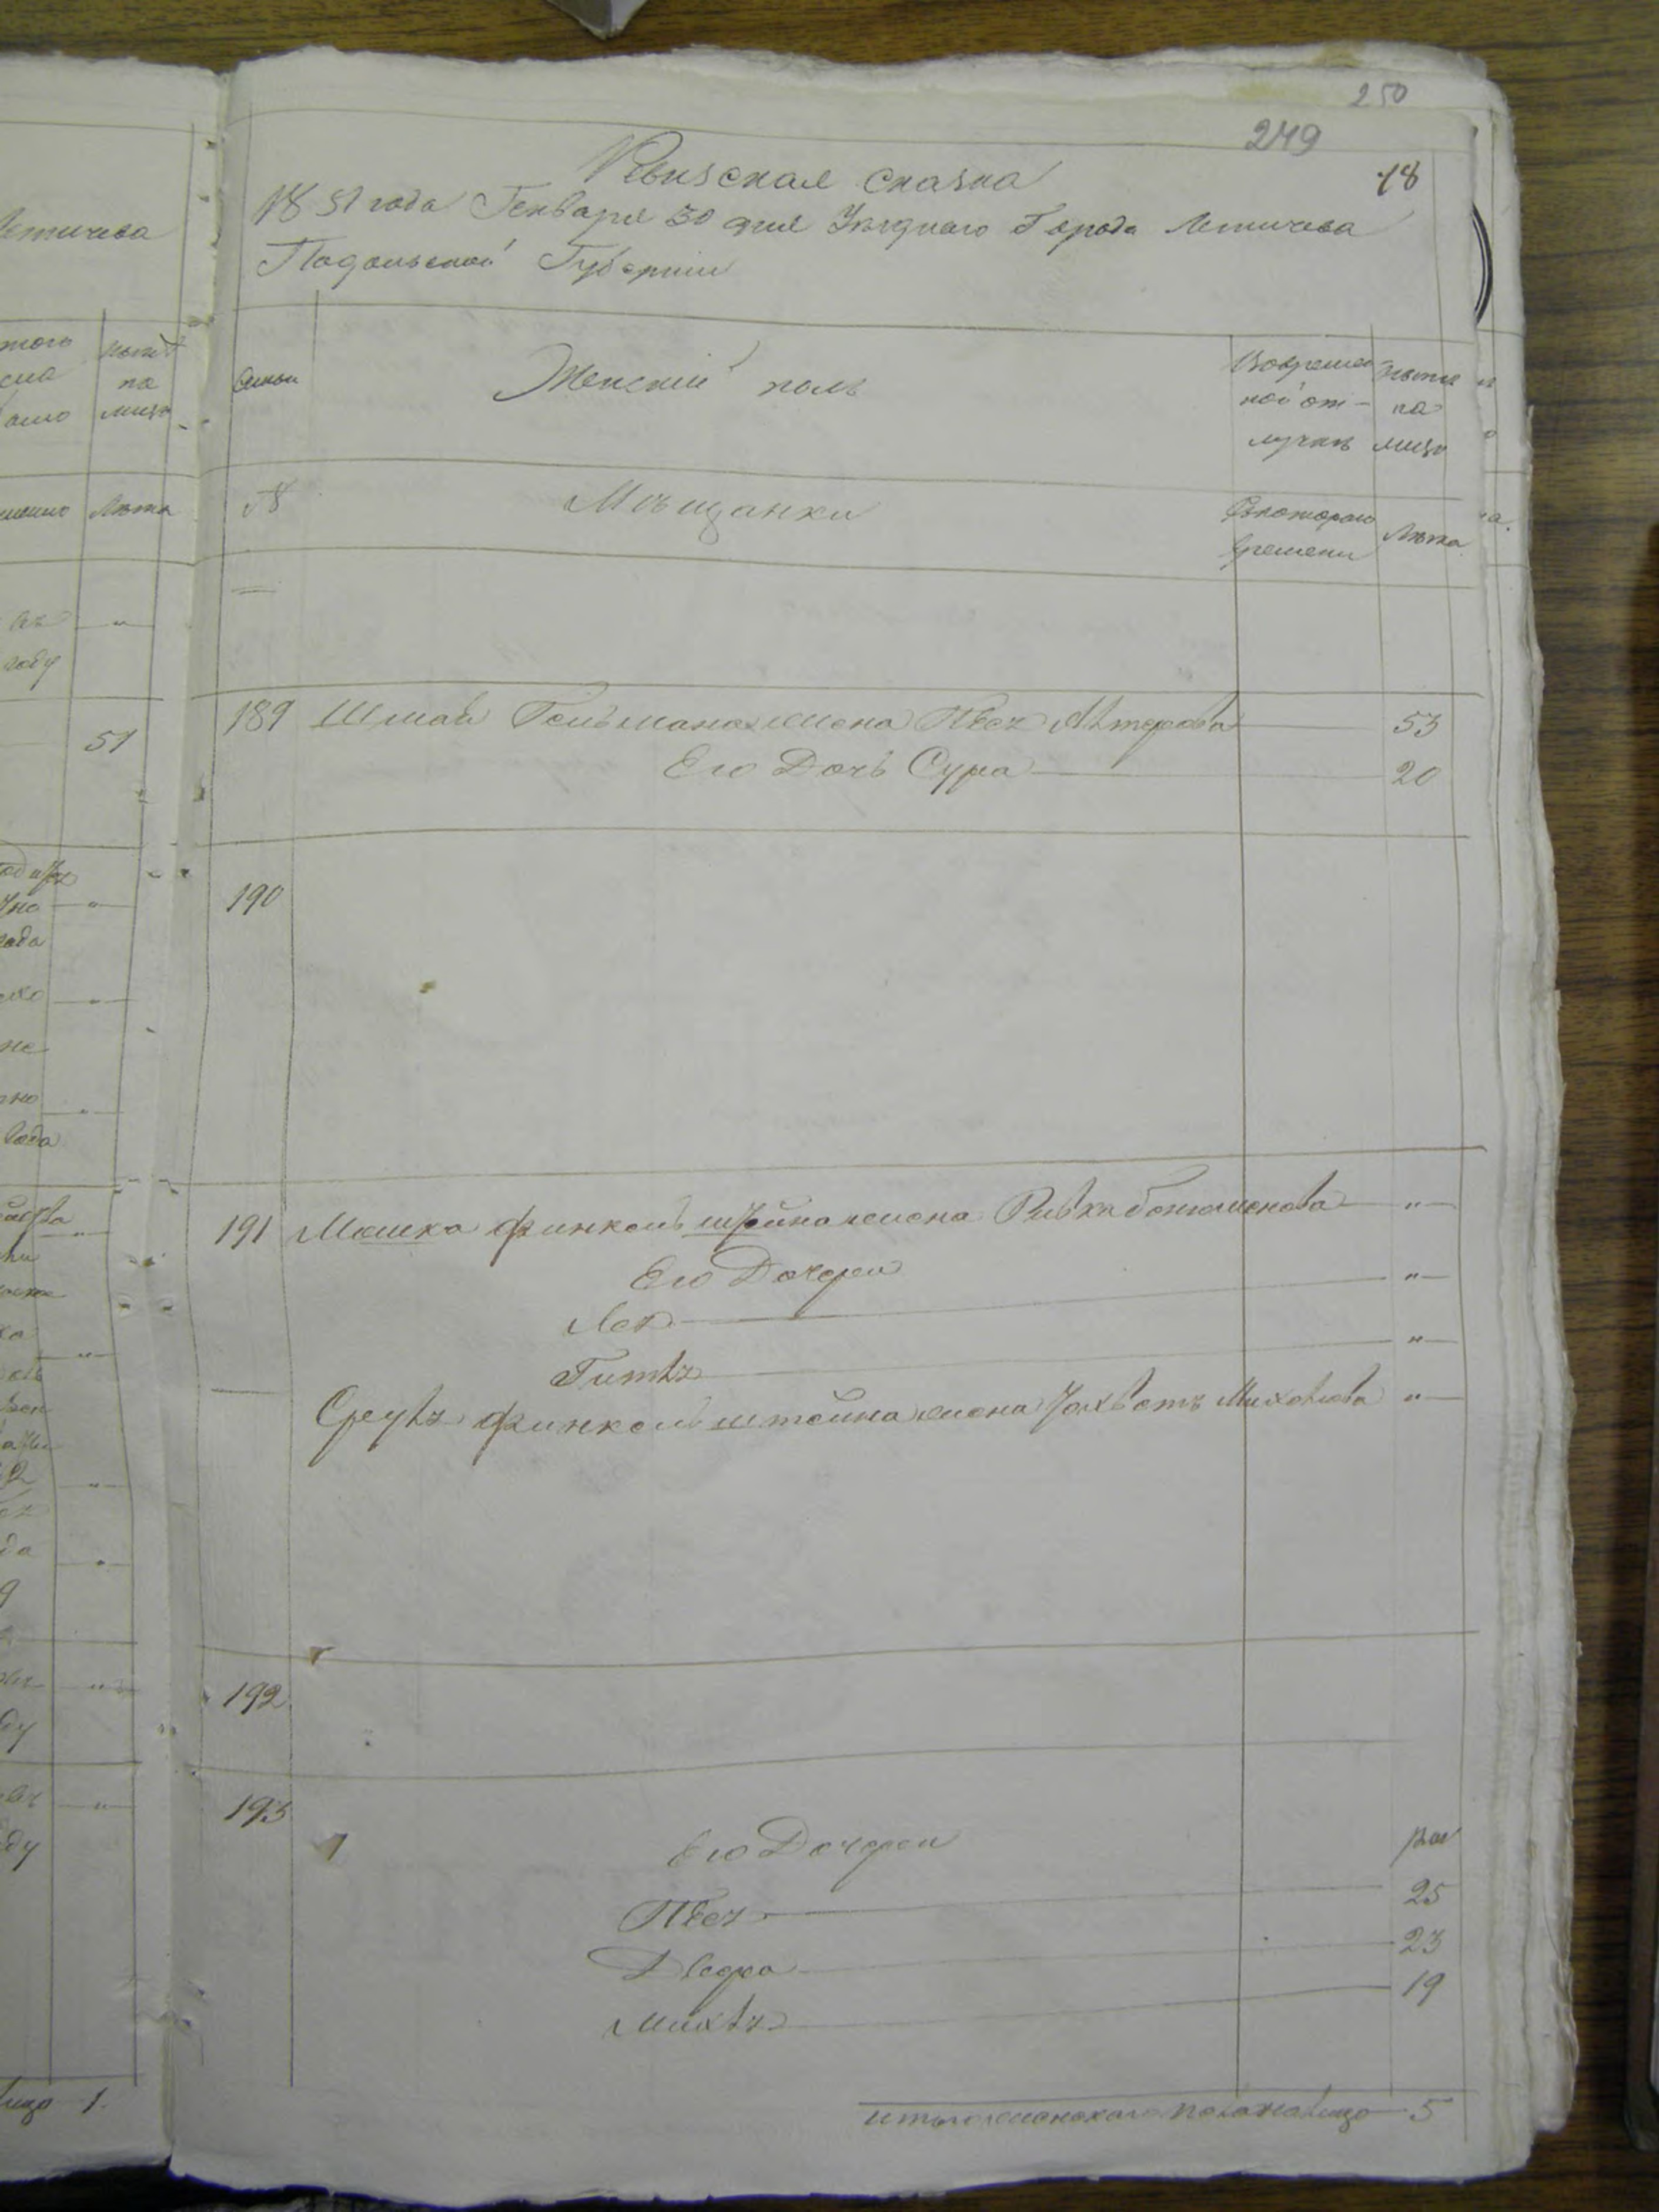 250
249
18
Ревизская сказка
1851 года Генваря 30 дня Уезднаго Города Летичева
Подольской Губернии
Семьи
Женский полъ
Вовремен
ной от-
лучкѣ
Ныне
на
лицо
№
Мѣщанки
Съкотораго
времени
Лѣта
189 Шмая Гельмана жена Песя Алтерова 53
Его Дочь Сура 20
190
191 Мошка Финкельштейна жена Ривка Бенюменова "
Его Дочери "
Лея "
Гитля
Сруля Финкельштейна жена Михелева "
192
193
Его Дочери
Песя 25
Двойра 23
Михля 19
итого женскаго пола налицо 5
Летичева
того
Ныне
на
лицо
Лѣта
году
51
года
не
года
ду
ду
лицо 1